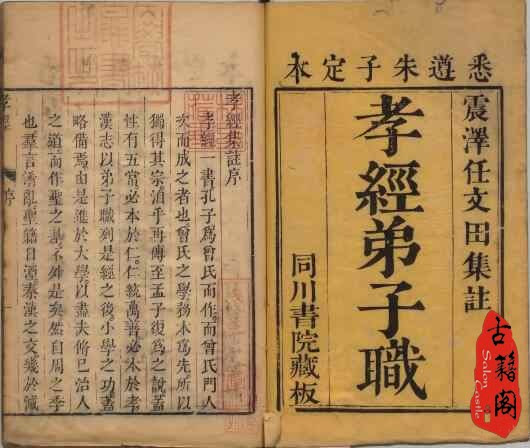 悉遵朱子定本
震澤任文田集註
孝經弟子職
同川書院藏板
孝經集註序
孝經一書孔子爲曾氏而作而曾氏門人
次而成之者也曾氏之學務本爲先所以
獨得其宗洎乎再傳至孟子復爲之說蓋
性有五常必本於仁仁統萬善必本於孝
漢志以弟子職列是經之後小學之功蓋
略備焉由是進於大學以盡夫脩己治人
之道而作聖之基不外是矣然自周之季
也羣言淆亂聖籍日湮秦漢之文殘於
孝經
序
古籍阁
Salon Castle